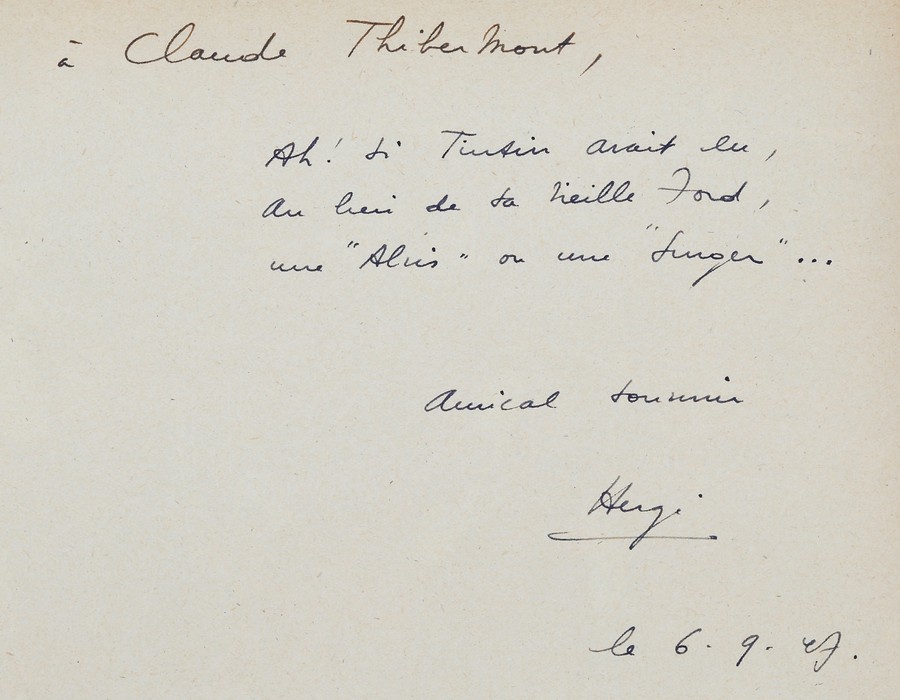 à Claude Thibermont,
Ah! si Tintin avait eu,
au lieu de sa vieille Ford,
une "Alvis" ou une "Singer"...
Amical souvenir
Hergé
le 6.9.47.